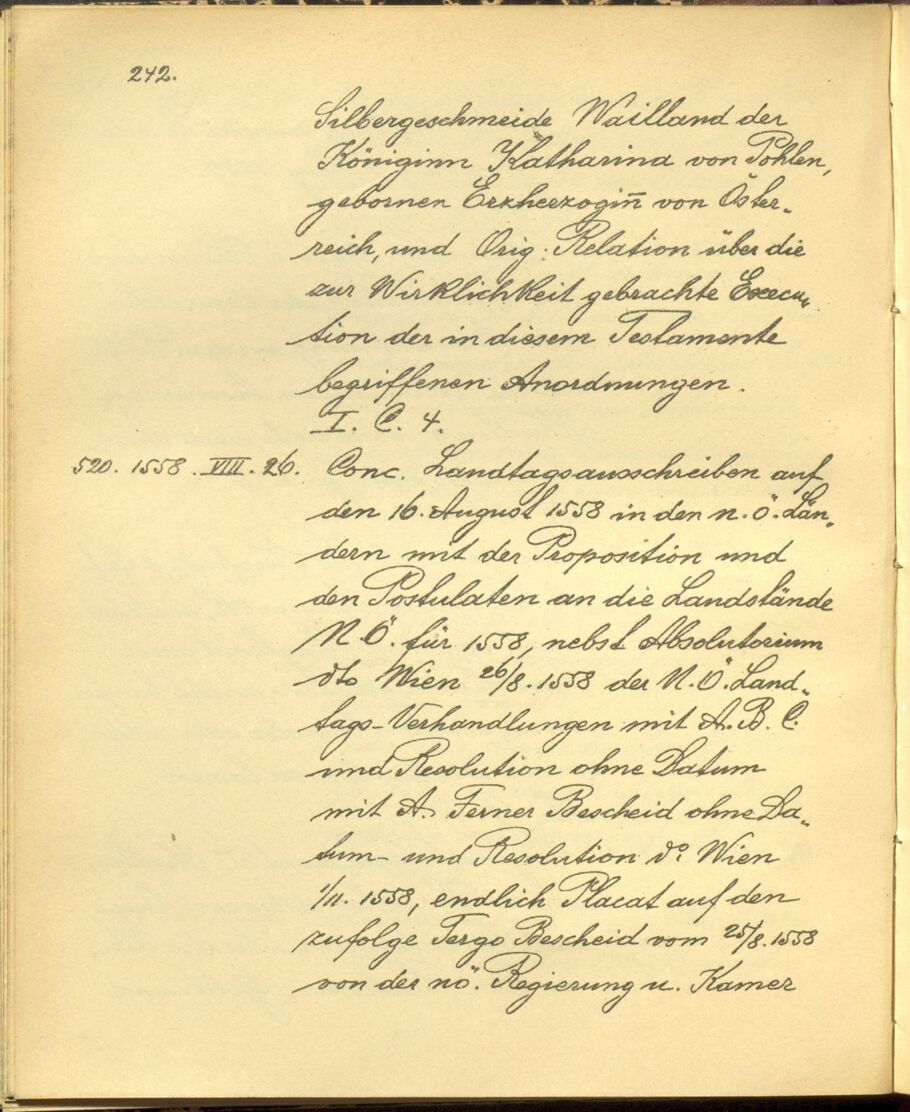 242.
Silbergeschmeide Wailland der
Königinn Katharina von Pohlen,
gebornen Erzherzogin̅ von Öster„
reich, und Orig: Relation über die
zur Wirklichkeit gebrachte Execu„
tion der in diesem Testamente
begriffenen Anordnungen.
I. C. 4.
520. 1558. VIII. 26. Conc. Landtagsausschreiben auf
den 16. August 1558 in den n. ö. Län„
dern mit der Proposition und
den Postulaten an die Landstände
N.Ö. für 1558, nebst Absolutorium
dto Wien 26/8. 1558 der N.Ö. Land„
tags-Verhandlungen mit A. B. C.
und Resolution ohne Datum
mit A. Ferner Bescheid ohne Da„
tum und Resolution dº. Wien
1/11. 1558, endlich Placat auf den
zufolge Tergo Bescheid vom 25/8. 1558
von der nö. Regierung u. Kamer